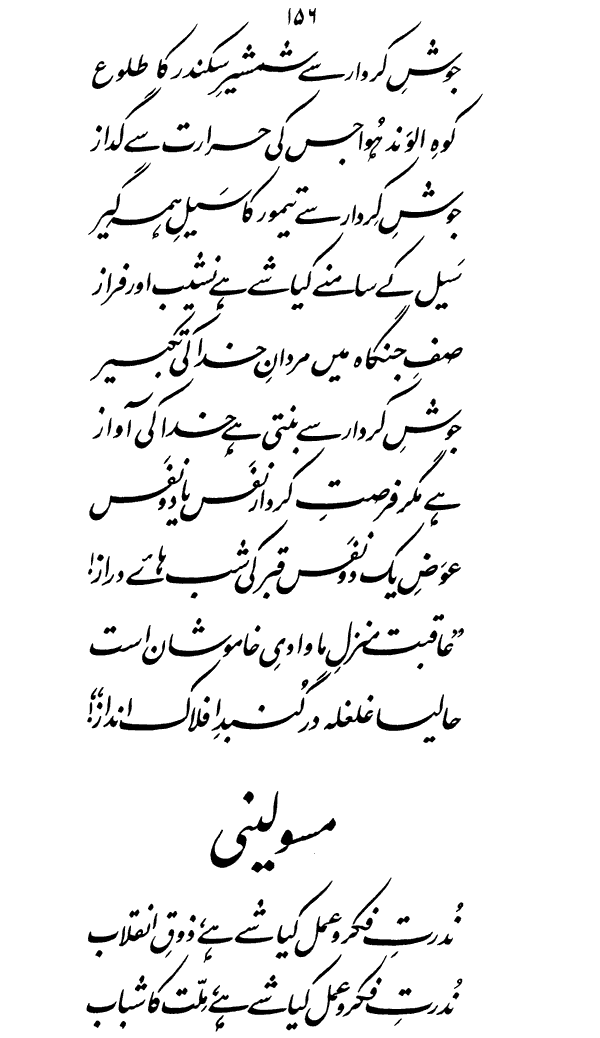 ۱۵۶
جوشِ کردار سے شمشیرِ سکندر کا طلوع
کوہِ الوَند ہُوا جس کی حرارت سے گداز
جوشِ کِردار سے تیمور کا سَیلِ ہمہ گیر
سَیل کے سامنے کیا شے ہے نشیب اور فراز
صفِ جنگاہ میں مردانِ خدا کی تکبیر
جوشِ کردار سے بنتی ہے خدا کی آواز
ہے مگر فرصتِ کردار نفَس یا دو نفَس
عوَضِ یک دو نفَس قبر کی شب ہائے دراز!
”عاقبت منزلِ ما وادیِ خاموشان است
حالیا غلغلہ در گُنبدِ افلاک انداز“!
مسولینی
نُدرتِ فکر و عمل کیا شے ہے، ذوقِ انقلاب
نُدرتِ فکر و عمل کیا شے ہے، مِلّت کا شباب